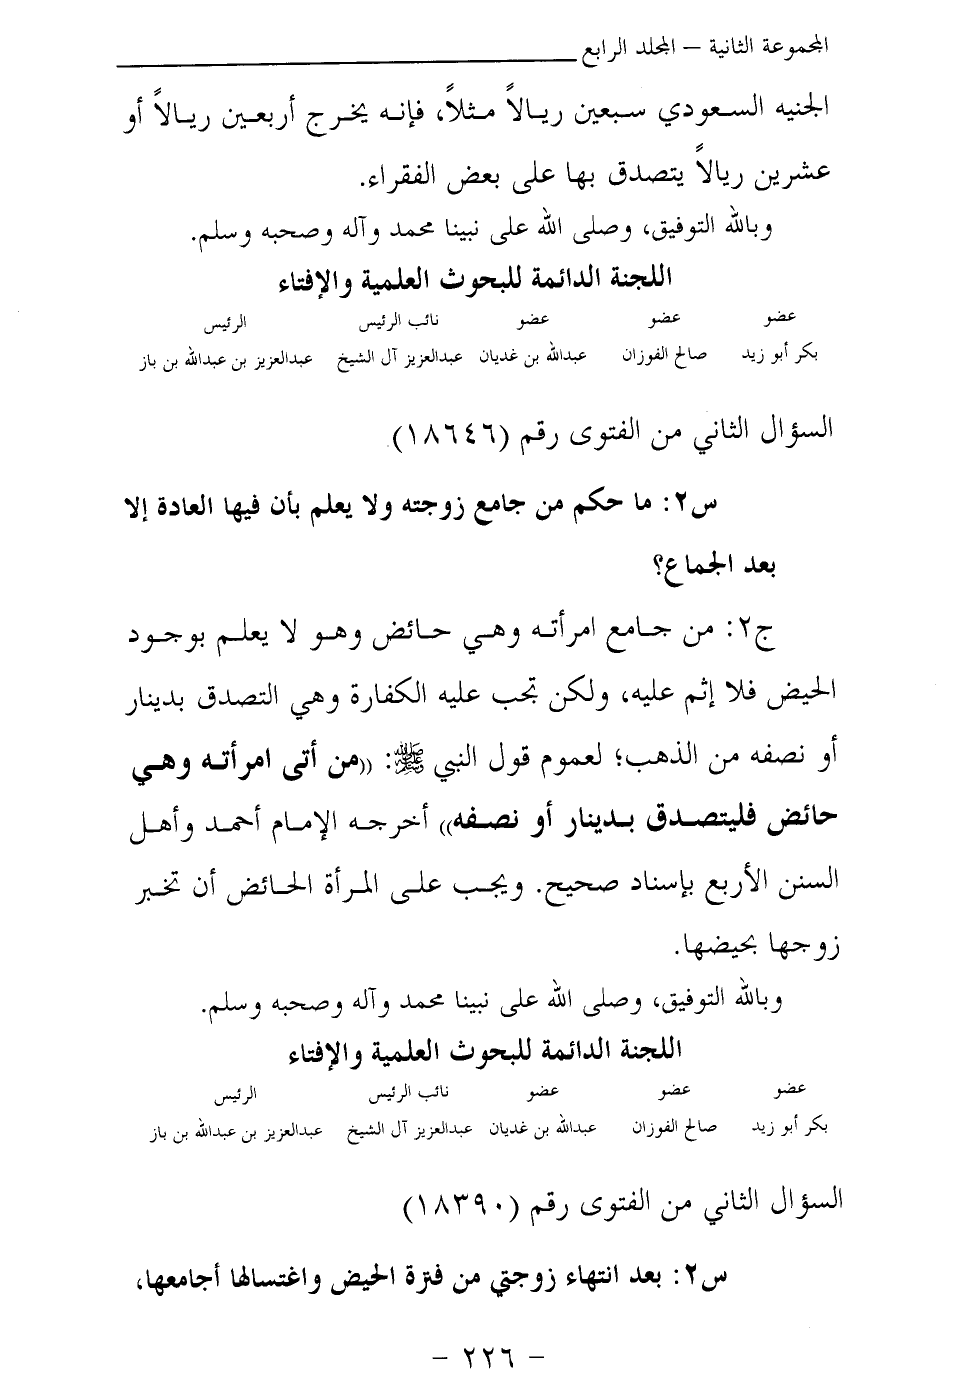 المجموعة الثانية – المجلد الرابع
الجنيه السعودي سبعين ريالاً مثلاً، فإنه يخرج أربعين ريالاً أو
عشرين ريالاً يتصدق بها على بعض الفقراء.
وبالله التوفيق، وصلى الله على نبينا محمد وآله وصحبه وسلم.
اللجنة الدائمة للبحوث العلمية والإفتاء
عضو عضو عضو نائب الرئيس الرئيس
بكر أبو زيد صالح الفوزان عبدالله بن غديان عبدالعزيز آل الشيخ عبدالعزيز بن عبدالله بن باز
السؤال الثاني من الفتوى رقم (١٨٦٤٦)
س٢: ما حكم من جامع زوجته ولا يعلم بأن فيها العادة إلا
بعد الجماع؟
ج٢: من جامع امرأته وهي حائض وهو لا يعلم بوجود
الحيض فلا إثم عليه، ولكن تجب عليه الكفارة وهي التصدق بدينار
أو نصفه من الذهب؛ لعموم قول النبي ﷺ: ((من أتى امرأته وهي
حائض فليتصدق بدينار أو نصفه)) أخرجه الإمام أحمد وأهل
السنن الأربع بإسناد صحيح. ويجب على المرأة الحائض أن تخبر
زوجها بحيضها.
وبالله التوفيق، وصلى الله على نبينا محمد وآله وصحبه وسلم.
اللجنة الدائمة للبحوث العلمية والإفتاء
عضو عضو عضو نائب الرئيس الرئيس
بكر أبو زيد صالح الفوزان عبدالله بن غديان عبدالعزيز آل الشيخ عبدالعزيز بن عبدالله بن باز
السؤال الثاني من الفتوى رقم (١٨٣٩٠)
س٢: بعد انتهاء زوجتي من فترة الحيض واغتسالها أجامعها،
– ٢٢٦ –